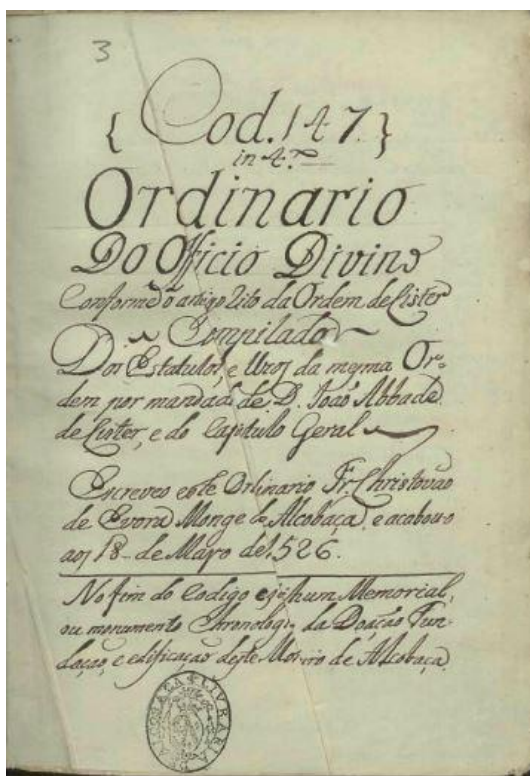 3
{ Cod. 147. }
in 4.º
Ordinario
Do Officio Divino
Conforme o antigo Rito da Ordem de Cister
Compilado
Dos Estatutos, e Uzos da mesma Or-
dem por mandado de D. João Abbade
de Cister, e do Capitulo Geral
Escreveo este Ordinario Fr. Christovão
de Evora Monge de Alcobaça, e acabou-o
aos 18 de Mayo de 1526.
No fim do Codigo está hum Memorial,
ou monumento Chronologi da Doação Fun-
dação, e edificação deste Mostro de Alcobaça.
LIVRARIA